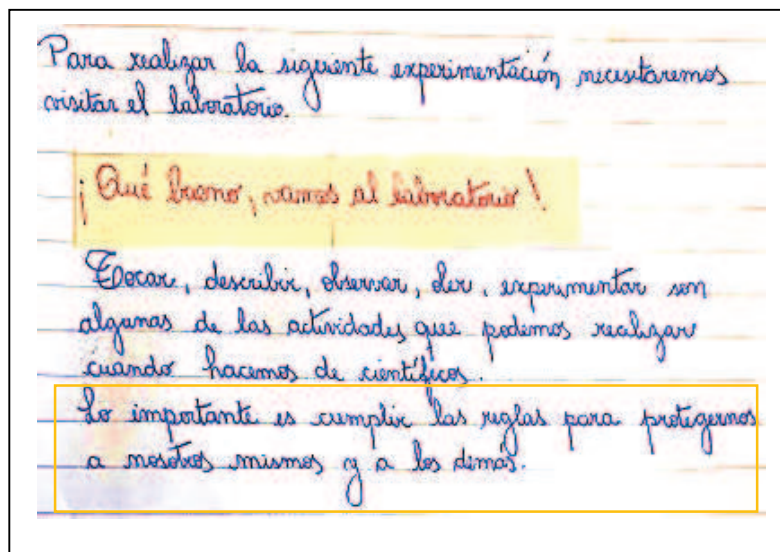 Para realizar la siguiente experimentación necesitaremos
visitar el laboratorio.
¡Qué bueno, vamos al laboratorio!
Tocar, describir, observar, oler, experimentar son
algunas de las actividades que podemos realizar
cuando hacemos de científicos.
Lo importante es cumplir las reglas para protegernos
a nosotros mismos y a los demás.